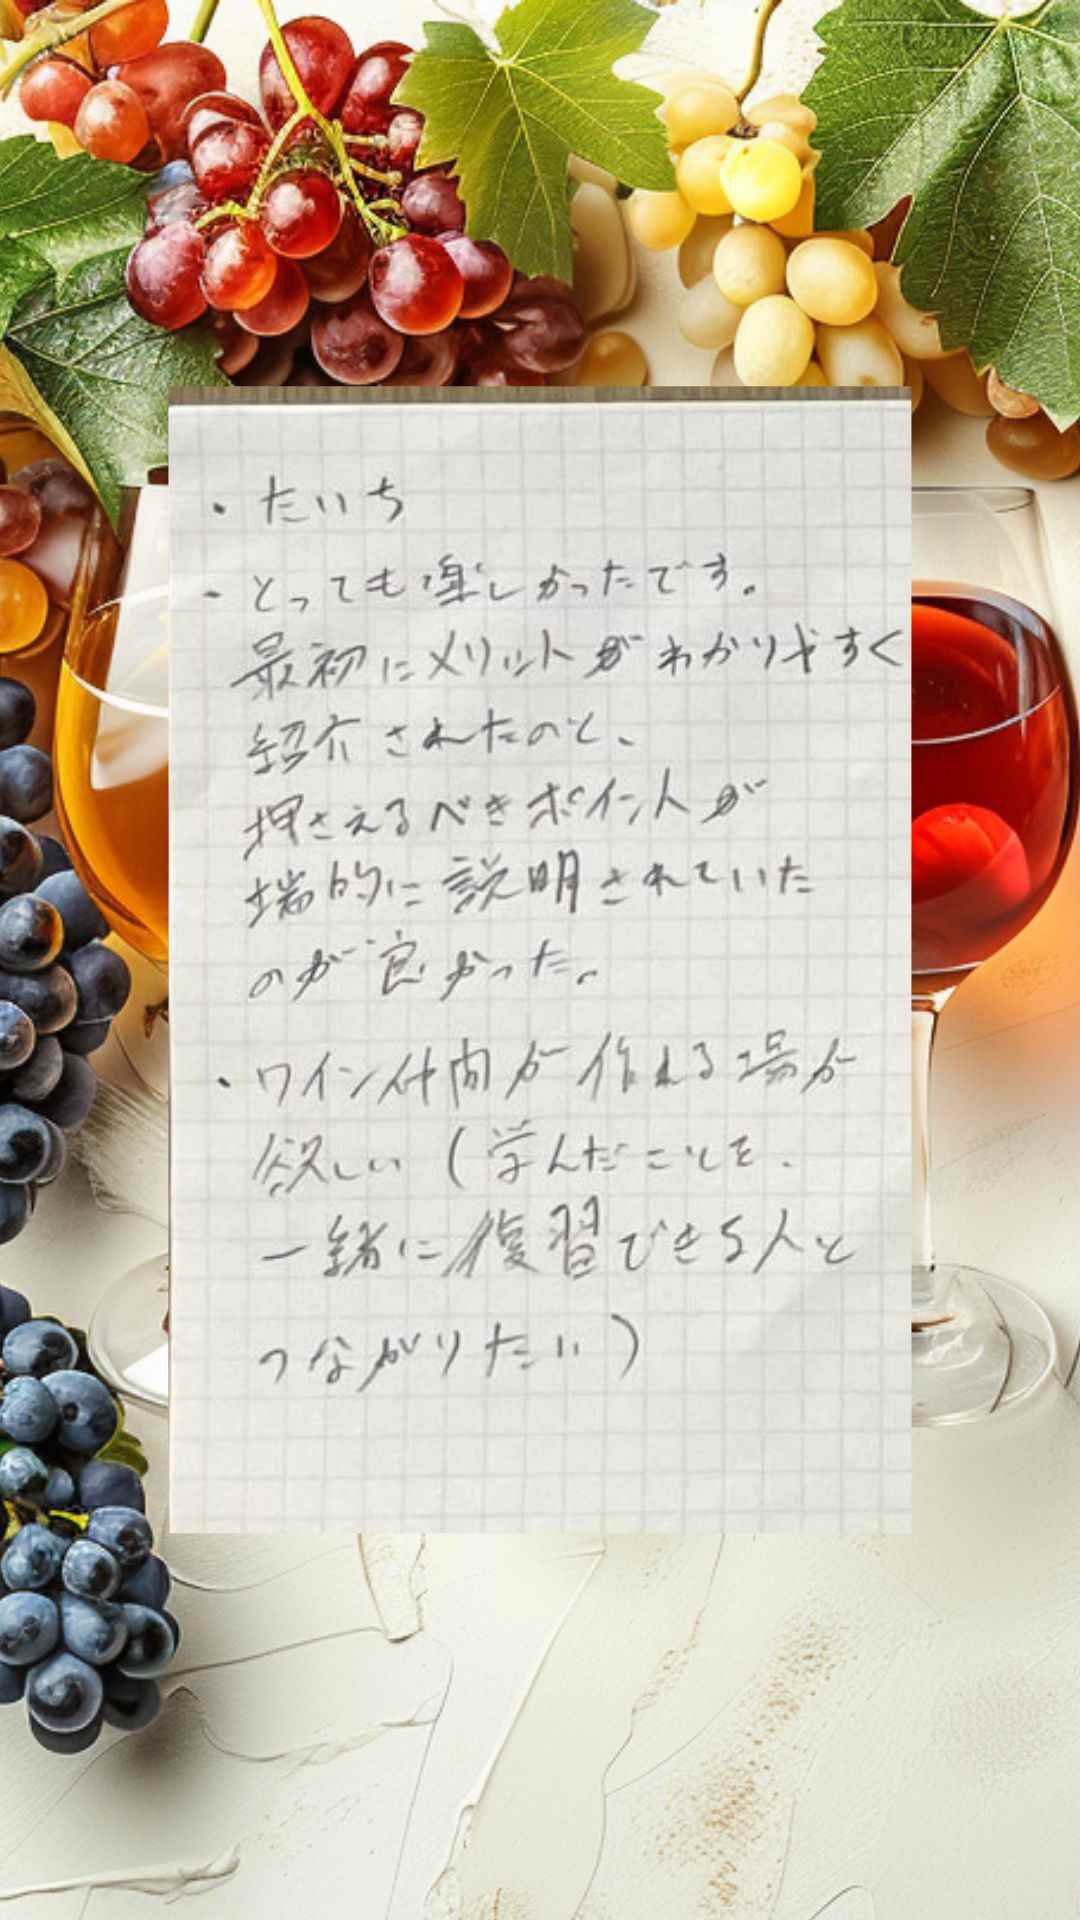 ・たいち
・とっても楽しかったです。
最初にメリットがわかりやすく
紹介されたのと、
押さえるべきポイントが
端的に説明されていた
のが良かった。
・ワイン仲間が作れる場が
欲しい(学んだことを、
一緒に復習できる人と
つながりたい)